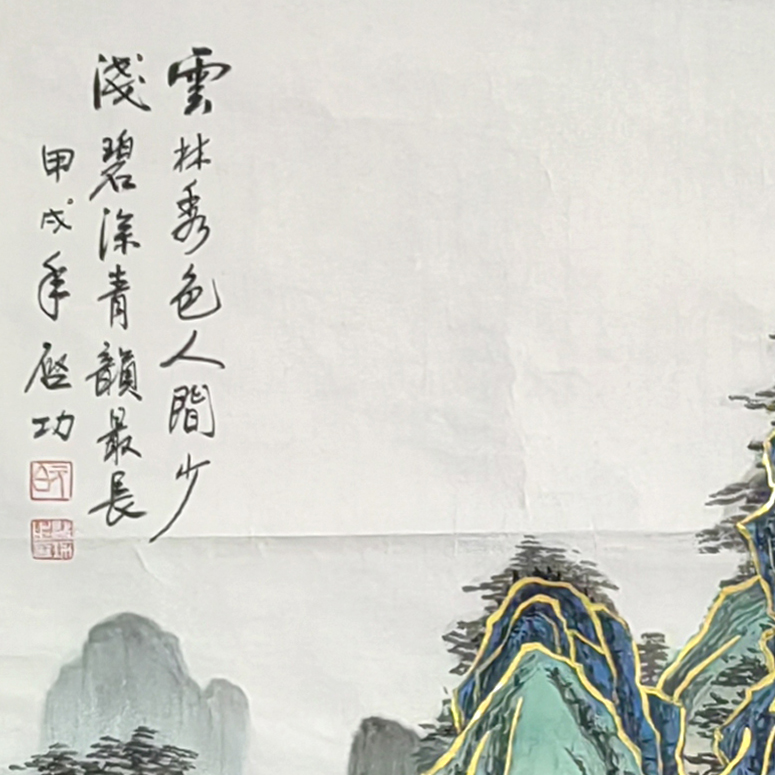 雲林秀色人間少
淺碧深青韻最長
甲戌年啟功
元白